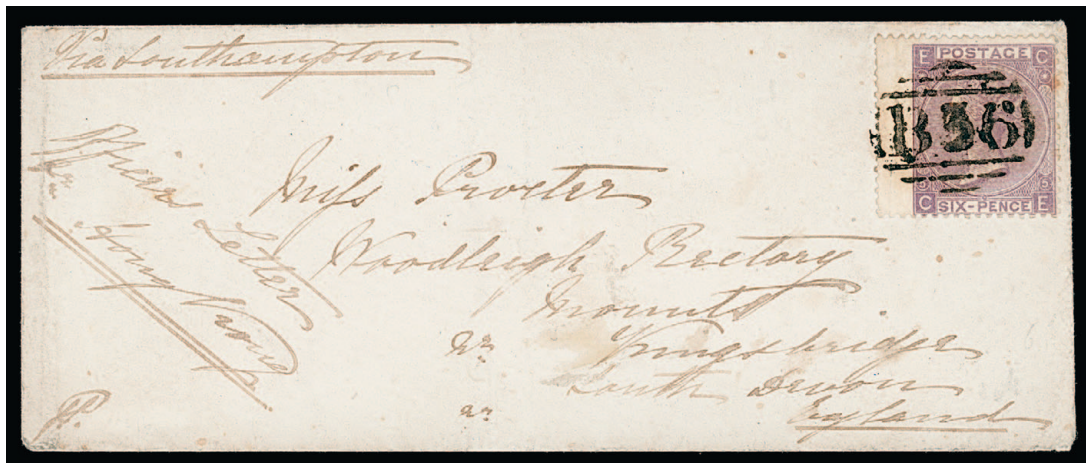 Via Southampton
E POSTAGE C
B36
C SIX-PENCE E
Officers Letter
Hong Kong
Miss Procter
Woodleigh Rectory
Mounts
nr Kingsbridge
South Devon
England